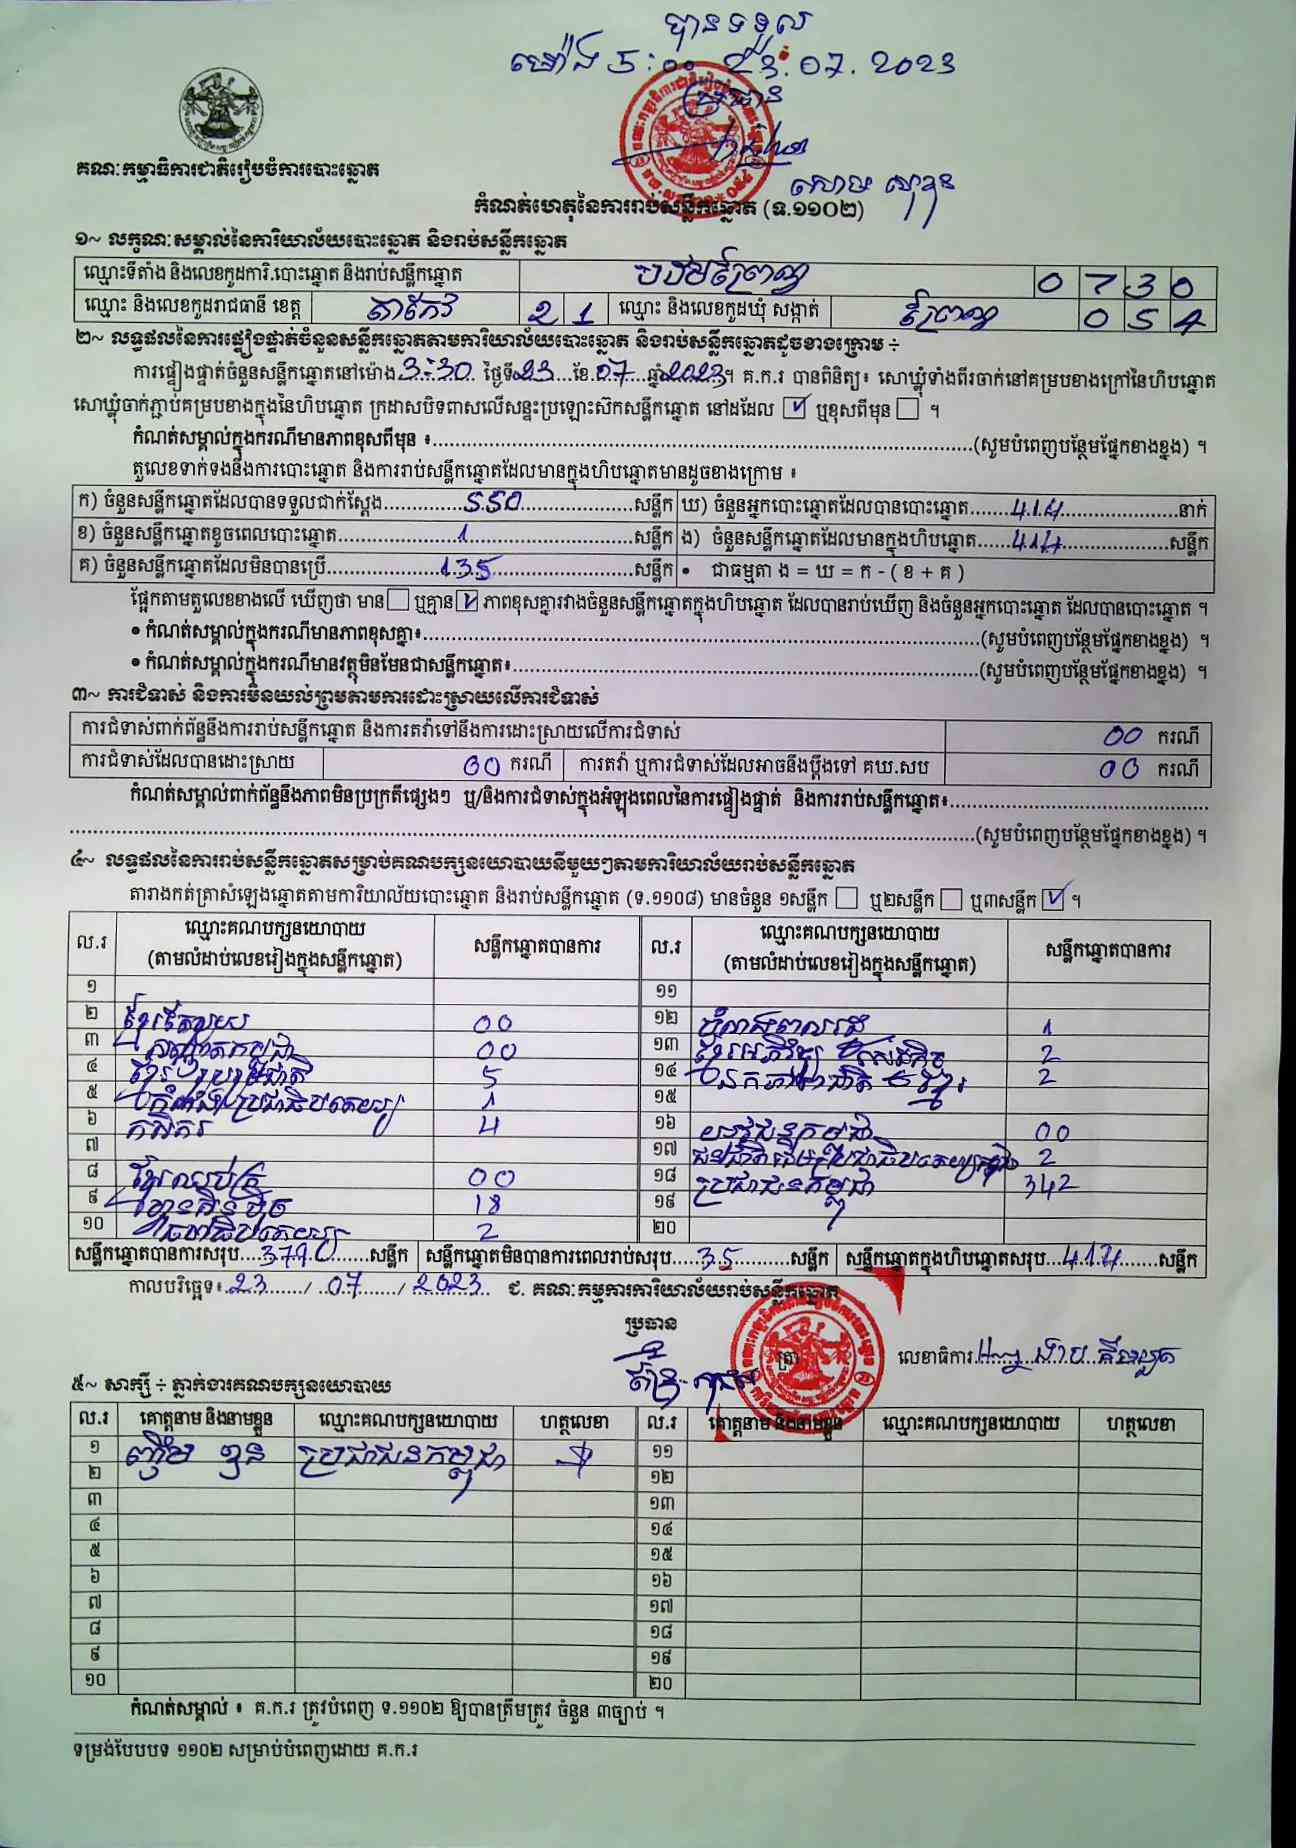 បានទទួល
ម៉ោង 5:00 ជ 23.07.2023
ប្រធាន
សោម សុខុន
គណៈកម្មាធិការជាតិរៀបចំការបោះឆ្នោត
កំណត់ហេតុនៃការរាប់សន្លឹកឆ្នោត (ទ.១១០២)
១~ លក្ខណៈសម្គាល់នៃការិយាល័យបោះឆ្នោត និងរាប់សន្លឹកឆ្នោត
ឈ្មោះទីតាំង និងលេខកូដការិ.បោះឆ្នោត និងរាប់សន្លឹកឆ្នោត 0 7 3 0
ឈ្មោះ និងលេខកូដរាជធានី ខេត្ត តាកែវ 2 1 ឈ្មោះ និងលេខកូដឃុំ សង្កាត់ 0 5 4
២~ លទ្ធផលនៃការផ្ទៀងផ្ទាត់ចំនួនសន្លឹកឆ្នោតតាមការិយាល័យបោះឆ្នោត និងរាប់សន្លឹកឆ្នោតដូចខាងក្រោម ÷
ការផ្ទៀងផ្ទាត់ចំនួនសន្លឹកឆ្នោតនៅម៉ោង 3:30 ថ្ងៃទី 23 ខែ 07 ឆ្នាំ 2023 ។ គ.ក.រ បានពិនិត្យ៖ សោឃ្លុំទាំងពីរចាក់នៅគម្របខាងក្រៅនៃហិបឆ្នោត
សោឃ្លុំចាក់ភ្ជាប់គម្របខាងក្នុងនៃហិបឆ្នោត ក្រដាសបិទពាសលើសន្ទះប្រឡោះស៊កសន្លឹកឆ្នោត នៅដដែល ☑ ឬខុសពីមុន ☐ ។
កំណត់សម្គាល់ក្នុងករណីមានភាពខុសពីមុន ៖ (សូមបំពេញបន្ថែមផ្នែកខាងខ្នង) ។
តួលេខទាក់ទងនឹងការបោះឆ្នោត និងការរាប់សន្លឹកឆ្នោតដែលមានក្នុងហិបឆ្នោតមានដូចខាងក្រោម ៖
ក) ចំនួនសន្លឹកឆ្នោតដែលបានទទួលជាក់ស្តែង 550 សន្លឹក ឃ) ចំនួនអ្នកបោះឆ្នោតដែលបានបោះឆ្នោត 414 នាក់
ខ) ចំនួនសន្លឹកឆ្នោតខូចពេលបោះឆ្នោត 1 សន្លឹក ង) ចំនួនសន្លឹកឆ្នោតដែលមានក្នុងហិបឆ្នោត 414 សន្លឹក
គ) ចំនួនសន្លឹកឆ្នោតដែលមិនបានប្រើ 135 សន្លឹក • ជាធម្មតា ង = ឃ = ក - ( ខ + គ )
ផ្អែកតាមតួលេខខាងលើ ឃើញថា មាន ☐ ឬគ្មាន ☑ ភាពខុសគ្នារវាងចំនួនសន្លឹកឆ្នោតក្នុងហិបឆ្នោត ដែលបានរាប់ឃើញ និងចំនួនអ្នកបោះឆ្នោត ដែលបានបោះឆ្នោត ។
• កំណត់សម្គាល់ក្នុងករណីមានភាពខុសគ្នា៖ (សូមបំពេញបន្ថែមផ្នែកខាងខ្នង) ។
• កំណត់សម្គាល់ក្នុងករណីមានវត្ថុមិនមែនជាសន្លឹកឆ្នោត៖ (សូមបំពេញបន្ថែមផ្នែកខាងខ្នង) ។
៣~ ការជំទាស់ និងការមិនយល់ព្រមតាមការដោះស្រាយលើការជំទាស់
ការជំទាស់ពាក់ព័ន្ធនឹងការរាប់សន្លឹកឆ្នោត និងការតវ៉ាទៅនឹងការដោះស្រាយលើការជំទាស់ 00 ករណី
ការជំទាស់ដែលបានដោះស្រាយ 00 ករណី ការតវ៉ា ឬការជំទាស់ដែលអាចនឹងប្តឹងទៅ គឃ.សប 00 ករណី
កំណត់សម្គាល់ពាក់ព័ន្ធនឹងភាពមិនប្រក្រតីផ្សេងៗ ឬ/និងការជំទាស់ក្នុងអំឡុងពេលនៃការផ្ទៀងផ្ទាត់ និងការរាប់សន្លឹកឆ្នោត៖
(សូមបំពេញបន្ថែមផ្នែកខាងខ្នង) ។
៤~ លទ្ធផលនៃការរាប់សន្លឹកឆ្នោតសម្រាប់គណបក្សនយោបាយនីមួយៗតាមការិយាល័យរាប់សន្លឹកឆ្នោត
តារាងកត់ត្រាសំឡេងឆ្នោតតាមការិយាល័យបោះឆ្នោត និងរាប់សន្លឹកឆ្នោត (ទ.១១០៨) មានចំនួន ១សន្លឹក ☐ ឬ២សន្លឹក ☐ ឬ៣សន្លឹក ☑ ។
ល.រ ឈ្មោះគណបក្សនយោបាយ (តាមលំដាប់លេខរៀងក្នុងសន្លឹកឆ្នោត) សន្លឹកឆ្នោតបានការ ល.រ ឈ្មោះគណបក្សនយោបាយ (តាមលំដាប់លេខរៀងក្នុងសន្លឹកឆ្នោត) សន្លឹកឆ្នោតបានការ
១ ១១
២ ខ្មែរតែមួយ 00 ១២ ឃ្លាំងពលរដ្ឋ 1
៣ សញ្ជាតកម្ពុជា 00 ១៣ ខ្មែរអភិវឌ្ឍន៍សេដ្ឋកិច្ច 2
៤ ខ្មែររួបរួមជាតិ 5 ១៤ 2
៥ កម្លាំងប្រជាធិបតេយ្យ 1 ១៥
៦ កសិករ 4 ១៦ យុវជនកម្ពុជា 00
៧ ១៧ ជនជាតិដើមប្រជាធិបតេយ្យកម្ពុជា 2
៨ ខ្មែរឈប់ក្រ 00 ១៨ ប្រជាជនកម្ពុជា 342
៩ ហ៊្វុនស៊ិនប៉ិច 18 ១៩
១០ ធម្មាធិបតេយ្យ 2 ២០
សន្លឹកឆ្នោតបានការសរុប 379 សន្លឹក សន្លឹកឆ្នោតមិនបានការពេលរាប់សរុប 35 សន្លឹក សន្លឹកឆ្នោតក្នុងហិបឆ្នោតសរុប 414 សន្លឹក
កាលបរិច្ឆេទ៖ 23 / 07 / 2023 ជ. គណៈកម្មការការិយាល័យរាប់សន្លឹកឆ្នោត
ប្រធាន
ត្រា លេខាធិការ
៥~ សាក្សី ÷ ភ្នាក់ងារគណបក្សនយោបាយ
ល.រ គោត្តនាម និងនាមខ្លួន ឈ្មោះគណបក្សនយោបាយ ហត្ថលេខា ល.រ គោត្តនាម និងនាមខ្លួន ឈ្មោះគណបក្សនយោបាយ ហត្ថលេខា
១ ញ៉ឹម ខុន ប្រជាជនកម្ពុជា ១១
២ ១២
៣ ១៣
៤ ១៤
៥ ១៥
៦ ១៦
៧ ១៧
៨ ១៨
៩ ១៩
១០ ២០
កំណត់សម្គាល់ ៖ គ.ក.រ ត្រូវបំពេញ ទ.១១០២ ឱ្យបានត្រឹមត្រូវ ចំនួន ៣ច្បាប់ ។
ទម្រង់បែបបទ ១១០២ សម្រាប់បំពេញដោយ គ.ក.រ